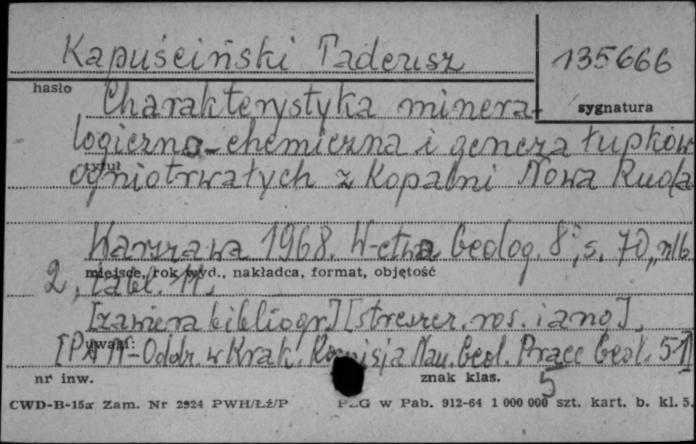 Kapuściński Tadeusz
135666
hasło
sygnatura
Charakterystyka minera-
logiczno-chemiczna i geneza łupków
tytuł
ogniotrwałych z kopalni Nowa Ruda
Warszawa 1968. W-ctwa Geolog. 8°, s. 70, nlb.
miejsce, rok wyd., nakładca, format, objętość
2, tabl. 11.
[zawiera bibliogr.] [streszcz. ros. i ang.].
uwagi:
[PAN-Oddz. w Krak. Komisja Nau. Geol. Prace Geol. 51]
nr inw.
znak klas.
5
CWD-B-15a Zam. Nr 2924 PWH/Łź/P
PZG w Pab. 912-64 1 000 000 szt. kart. b. kl. 5.